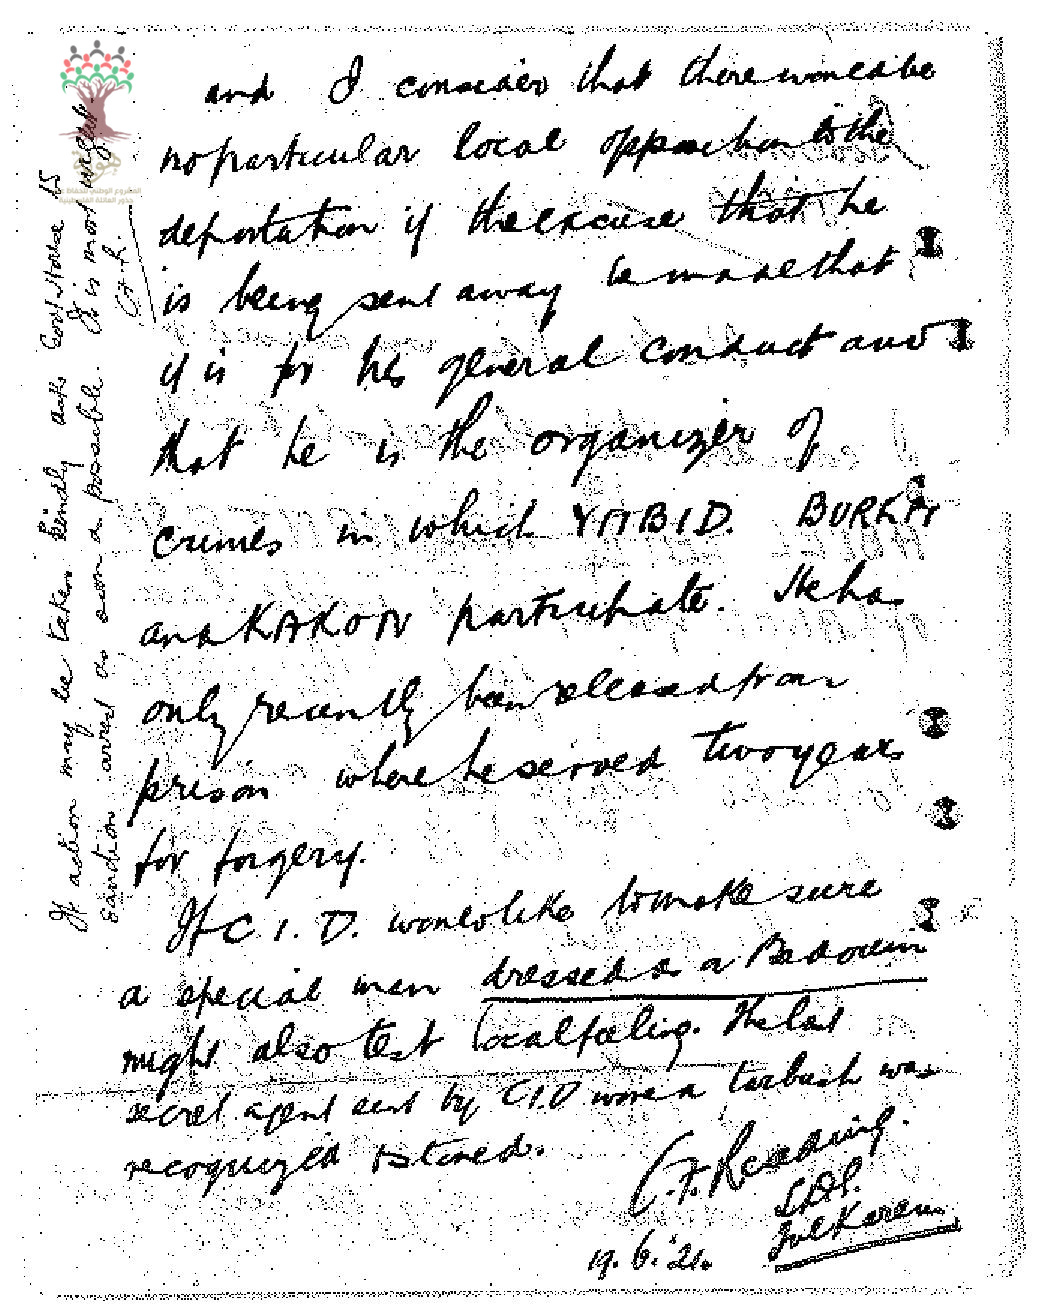 and I consider that there would be
no particular local opposition to the
deportation if the excuse that he
is being sent away be made that
it is for his general conduct and
that he is the organizer of
crimes in which YABID. BURKA
and KAKON participate. He has
only recently been released from
prison where he served two years
for forgery.
If C.I.D. would like to make sure
a special man dressed as a Bedouin
might also test local feeling. The last
secret agent sent by C.I.D wore a tarbush was
recognized & stoned.
C.F. Reading.
Tul Karem.
19.6.21.
If action may be taken kindly ask Govt House is
Sanction arrest as soon as possible. It is most urgent.
المشروع الوطني للحفاظ على
جذور العائلة الفلسطينية